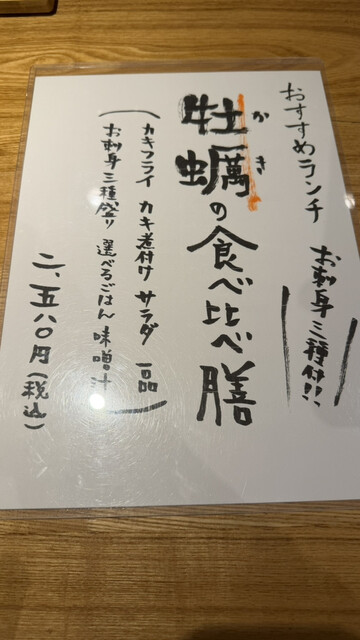 おすすめランチ
お刺身三種付!!
牡蠣の食べ比べ膳
かき
(カキフライ カキ煮付け サラダ 一品
お刺身三種盛り 選べるごはん 味噌汁)
二、五八〇円(税込)